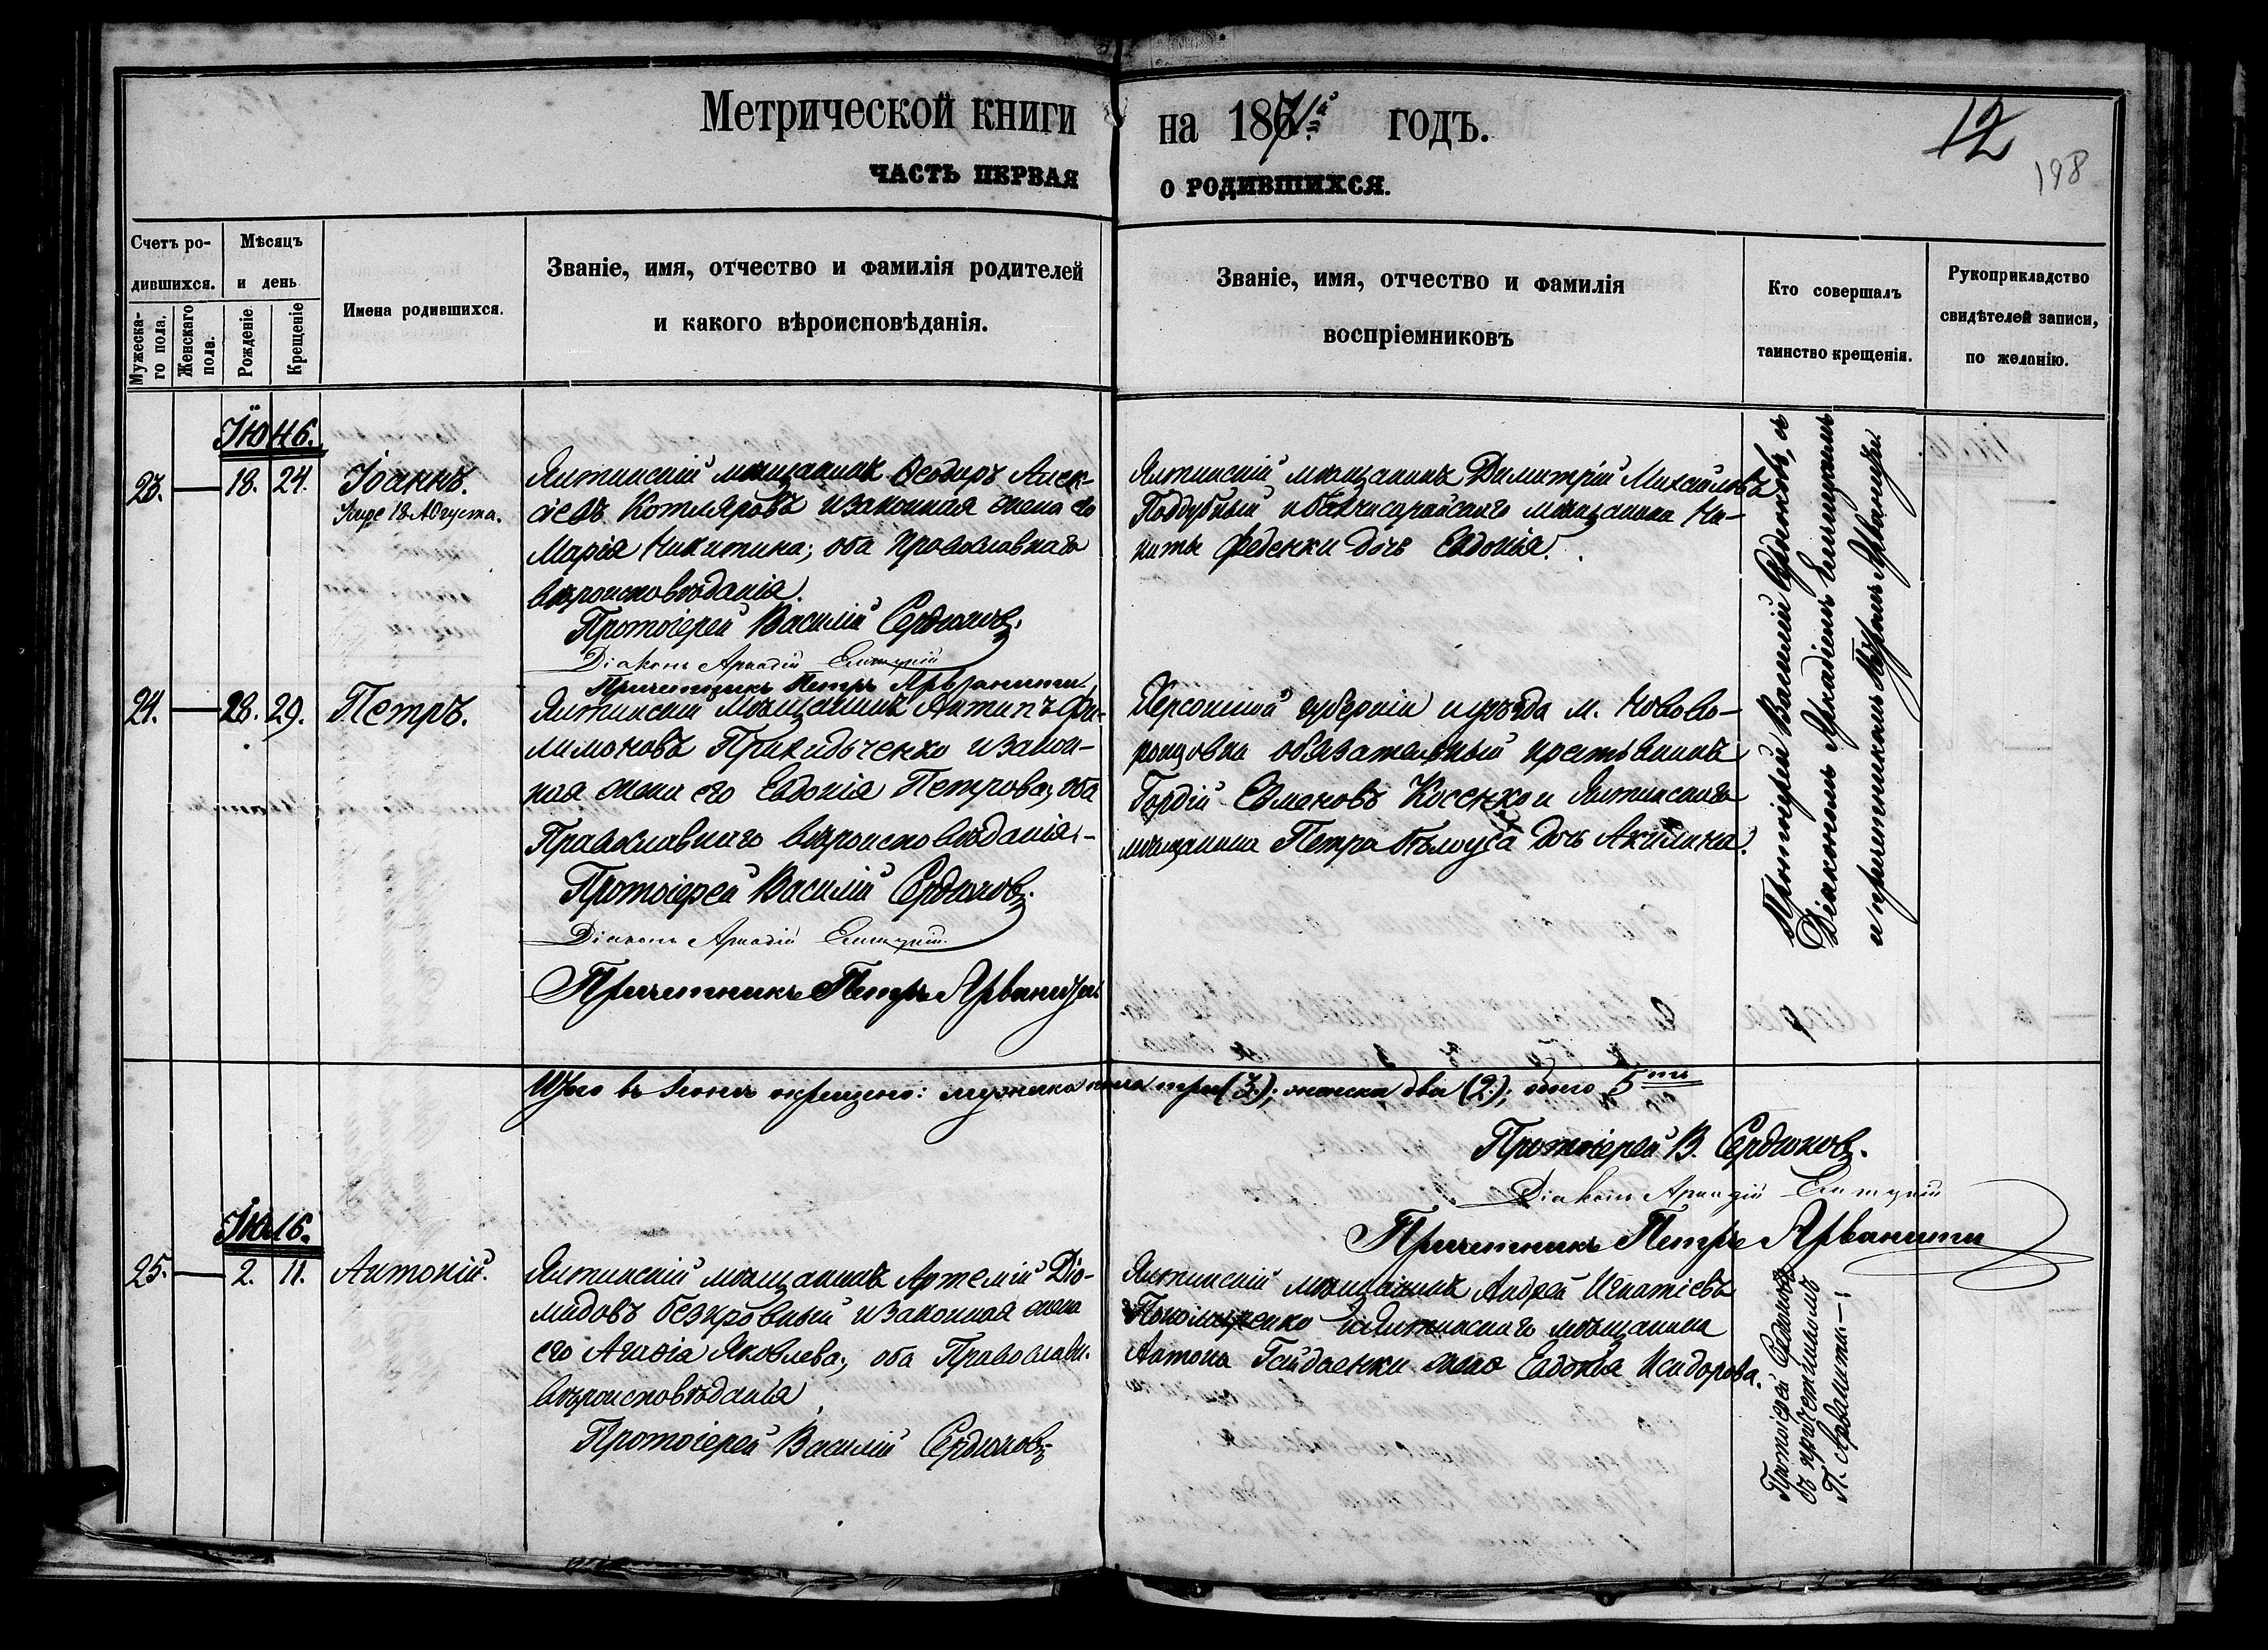 Метрической книги на 1871й годъ.
12
198
ЧАСТЬ ПЕРВАЯ О РОДИВШИХСЯ.
Счетъ ро-
дившихся.
Мѣсяцъ
и день
Мужеска-
го пола.
Женскаго
пола.
Рожденіе.
Крещеніе
Имена родившихся.
Званіе, имя, отчество и фамилія родителей
и какого вѣроисповѣданія.
Званіе, имя, отчество и фамилія
воспріемниковъ
Кто совершалъ
таинство крещенія.
Рукоприкладство
свидѣтелей записи,
по желанію.
23. — 18. 24.
Іоаннъ.
18 Августа.
Ялтинскій мѣщанинъ Ѳеодоръ Алек-
сѣевъ Котляровъ и законная жена его
Марія Никитина; оба православнаго
вѣроисповѣданія.
Протоіерей Василій Сердюковъ.
Діаконъ Аркадій
Причетникъ Петръ Арванити
Ялтинскій мѣщанинъ Димитрій Михайловъ
Поддубный и бахчисарайскаго мѣщанина Ни-
киты Феденки дочь Евдокія.
Протоіерей Василій Сердюковъ, съ
Діакономъ Аркадіемъ
и причетникомъ Петромъ Арванити
24. — 28. 29.
Петръ.
Ялтинскій мѣщанинъ Антипъ Фи-
лимоновъ Прикидьченко и закон-
ная жена его Евдокія Петрова; оба
Православнаго вѣроисповѣданія. —
Протоіерей Василій Сердюковъ.
Діаконъ Аркадій
Причетникъ Петръ Арванити
Херсонской губерніи и уѣзда м. Ново-во-
ронцовки обязательный крестьянинъ
Гордій Семеновъ Косенко и Ялтинскаго
мѣщанина Петра Бѣлоуса дочь Акилина.
Итого въ Іюнѣ окрещено: мужеска пола три (3.); женска два (2.); обоего 5ть
Протоіерей В. Сердюковъ.
Діаконъ Аркадій
Причетникъ Петръ Арванити
25. — 2. 11.
Антоній.
Ялтинскій мѣщанинъ Артемій Діо-
мидовъ Безкровный и законная жена
его Агафія Яковлева; оба Православн.
вѣроисповѣданія.
Протоіерей Василій Сердюковъ
Ялтинскій мѣщанинъ Андрей Игнатіевъ
Пономаренко и Ялтинскаго мѣщанина
Антона Гайдаенки жена Евдокія Исидорова.
Протоіерей Сердюковъ
съ причетникомъ
П. Арванити. —